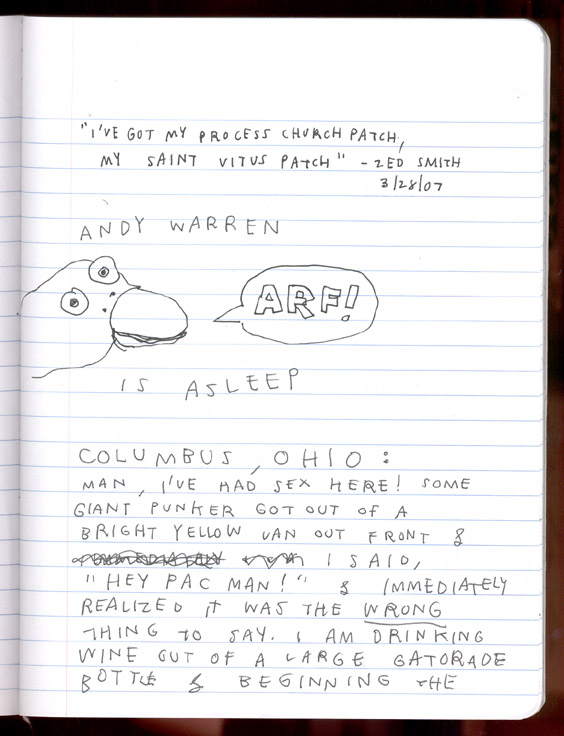 "I'VE GOT MY PROCESS CHURCH PATCH,
MY SAINT VITUS PATCH" - ZED SMITH
3/28/07
ANDY WARREN
ARF!
IS ASLEEP
COLUMBUS, OHIO:
MAN, I'VE HAD SEX HERE! SOME
GIANT PUNKER GOT OUT OF A
BRIGHT YELLOW VAN OUT FRONT &
I SAID,
"HEY PAC MAN!" & IMMEDIATELY
REALIZED IT WAS THE WRONG
THING TO SAY. I AM DRINKING
WINE OUT OF A LARGE GATORADE
BOTTLE & BEGINNING THE